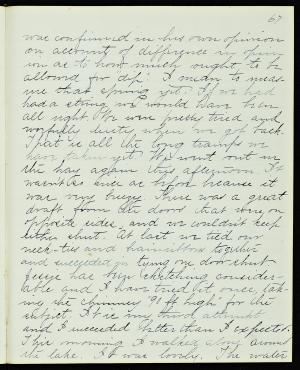 67
was confirmed in his own opinion
on account of difference in opin
ion as to how much ought to be
allowed for dip. I mean to meas-
ure that spring yet. If we had
had a string we would have been
all right. We were pretty tired and
dusty when we got back.
That is all the long tramps we
have taken yet. We went out in
the hay again this afternoon. It
wasn't as nice as before because it
was very breezy. There was a great
draft from the doors that were on
opposite sides and we couldn't keep
either shut. At last we tied our
neck-ties and hair ribbons together
and succeeded in tying one door shut.
has been sketching consider-
able and I have tried it once, tak-
ing the chimney "90 ft high" for the
subject. It is my third attempt
and I succeeded better than I expected.
This morning I walked along around
the lake. It was lovely. The water